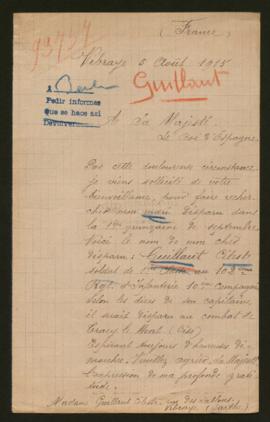 (France)
93727
Vibraye 5 Août 1915
Guillaut
A Berlin
Pedir informes
que se hace así
Devuélvase
A Sa Majesté
Le Roi d'Espagne
Par cette douloureuse circonstance
je viens sollicité de votre
bienveillance, pour faire recher
cher mon mari disparu dans
la 1ère quinzaine de septembre
Voici le nom de mon cher
disparu: Guillaut Céleste
soldat de au 103ème
Rgt. d'Infanterie 10ème Compagnie
Selon les dires de son capitaine,
il serait disparu au combat de
Tracy le Mont (Oise)
Espérant toujours d'heureuses dé
marches. Veuillez agréer, sa Majesté
l'expression de ma profonde grati
tude.
Madame Guillaut Céleste, rue
Vibraye (Sarthe)